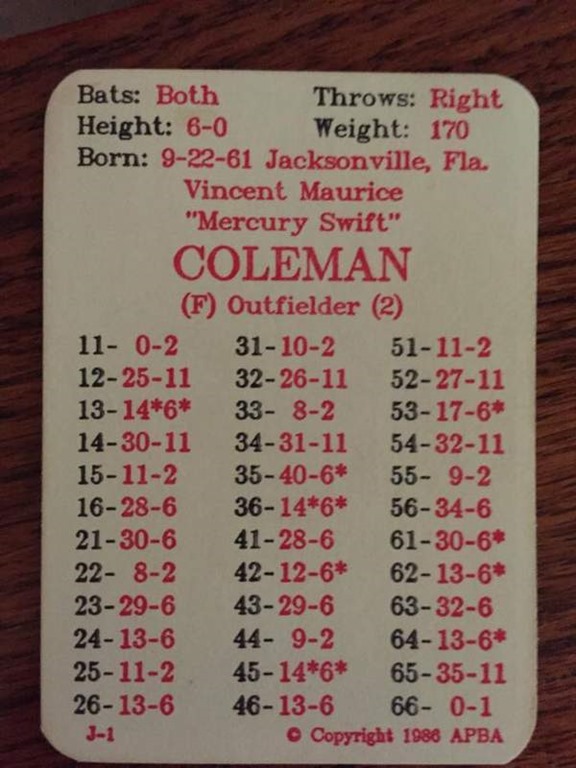 Bats: Both Throws: Right
Height: 6-0 Weight: 170
Born: 9-22-61 Jacksonville, Fla.
Vincent Maurice
"Mercury Swift"
COLEMAN
(F) Outfielder (2)
11- 0-2 31-10-2 51-11-2
12-25-11 32-26-11 52-27-11
13-14*6* 33- 8-2 53-17-6*
14-30-11 34-31-11 54-32-11
15-11-2 35-40-6* 55- 9-2
16-28-6 36-14*6* 56-34-6
21-30-6 41-28-6 61-30-6*
22- 8-2 42-12-6* 62-13-6*
23-29-6 43-29-6 63-32-6
24-13-6 44- 9-2 64-13-6*
25-11-2 45-14*6* 65-35-11
26-13-6 46-13-6 66- 0-1
J-1 © Copyright 1986 APBA